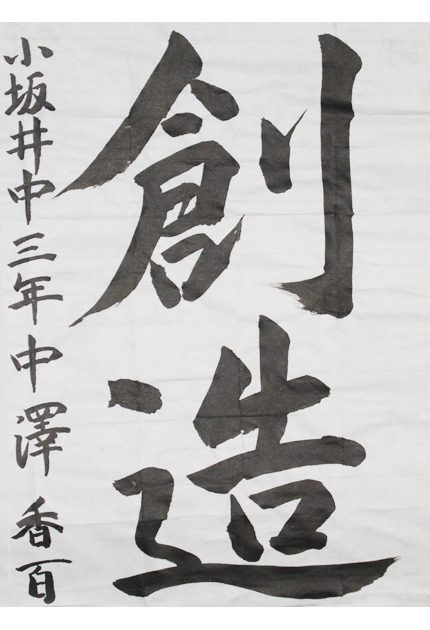 創造
小坂井中三年 中澤 香百